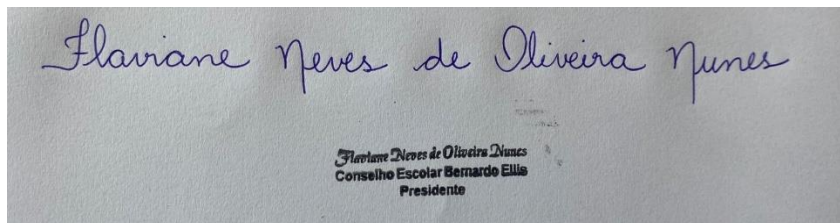 Flaviane Neves de Oliveira Nunes
Flaviane Neves de Oliveira Nunes
Conselho Escolar Bernardo Ellis
Presidente